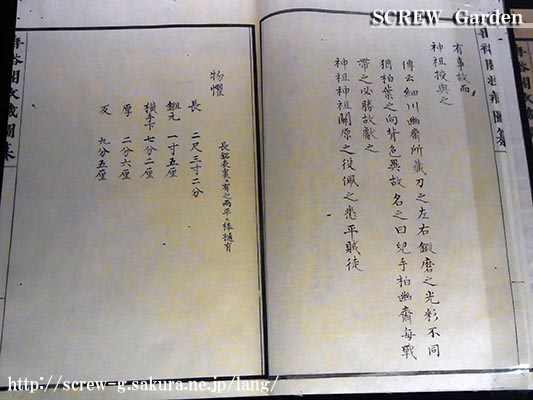 SCREW Garden
有事故而
神祖授與之
傳云細川幽齋所藏刀之左右鍛磨之光彩不同
猶柏葉之向背色異故名之曰兒手柏幽齋每戰
帶之必勝故獻之
神祖神祖關原之役佩之悉平賊徒
長銘表裏有之兩平ニ棒樋有
物懼
長 二尺三寸二分
鎺元 一寸五厘
横手下 七分二厘
厚 二分六厘
反 九分五厘
http://screw-g.sakura.ne.jp/lang/